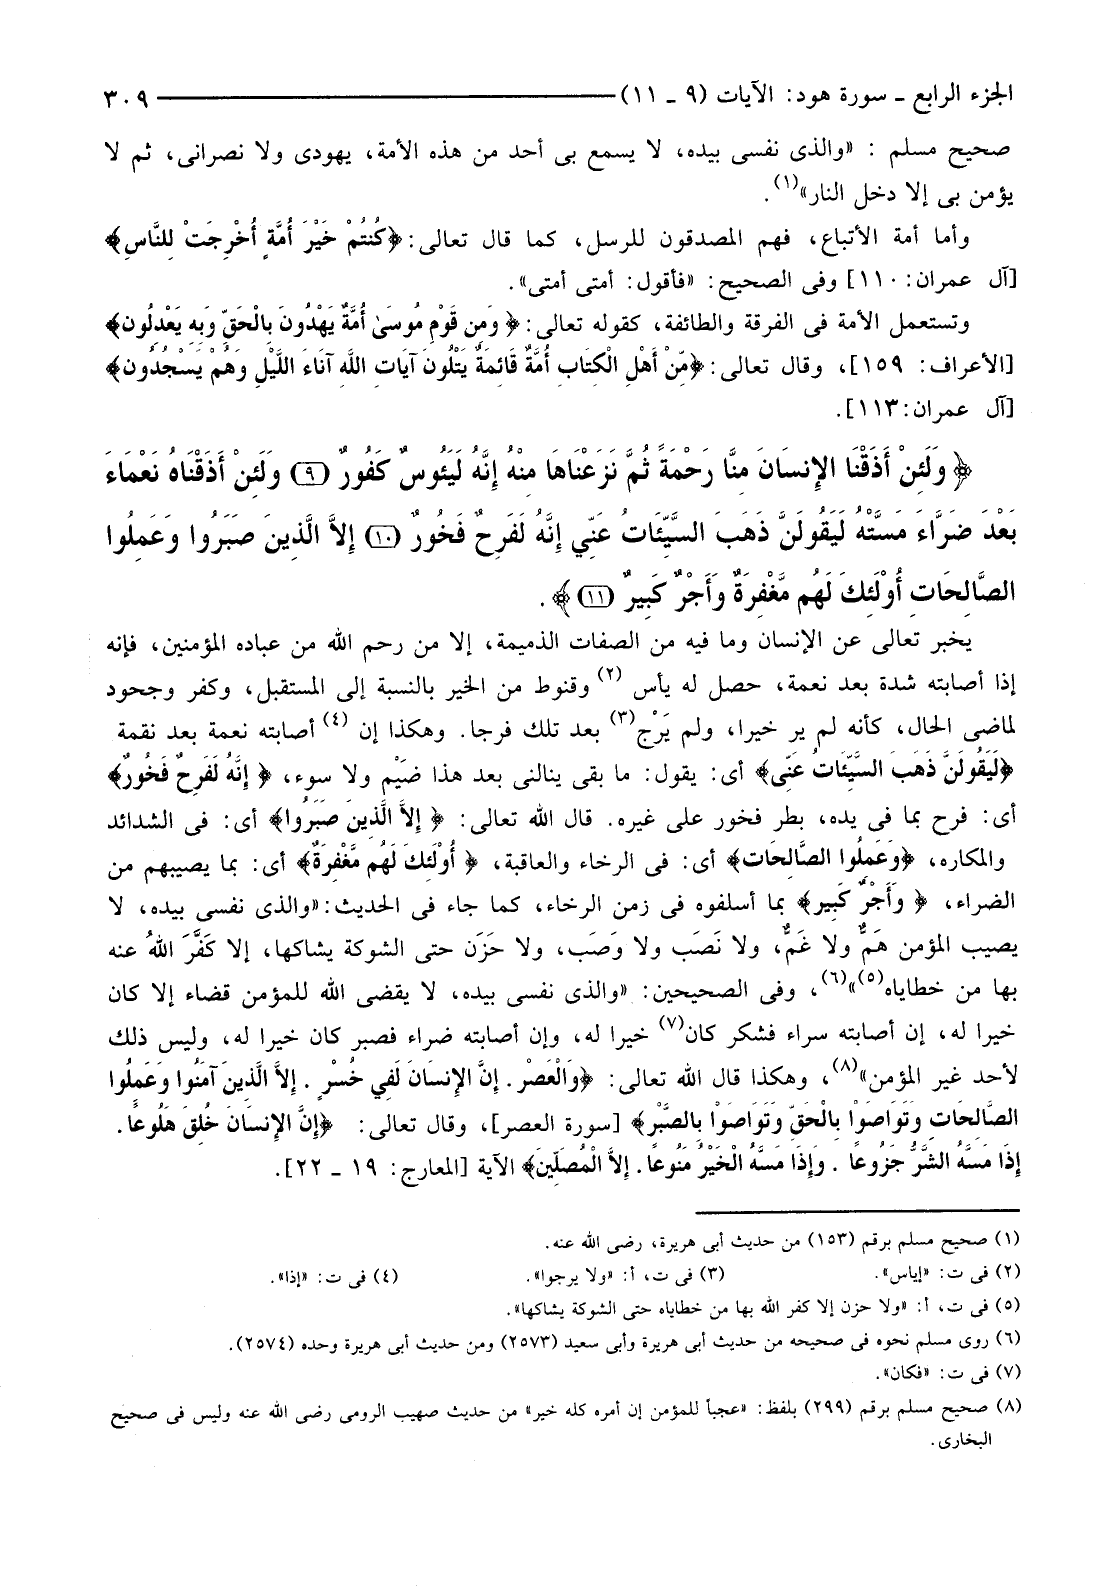 الجزء الرابع ـ سورة هود: الآيات (٩ ـ ١١) ٣٠٩
صحيح مسلم : «والذى نفسى بيده، لا يسمع بى أحد من هذه الأمة، يهودى ولا نصرانى، ثم لا
يؤمن بى إلا دخل النار»(١) .
وأما أمة الأتباع، فهم المصدقون للرسل، كما قال تعالى: ﴿كُنتُمْ خَيْرَ أُمَّةٍ أُخْرِجَتْ لِلنَّاسِ﴾
[آل عمران: ١١٠] وفى الصحيح: «فأقول: أمتى أمتى».
وتستعمل الأمة فى الفرقة والطائفة، كقوله تعالى: ﴿ وَمِن قَوْمِ مُوسَىٰ أُمَّةٌ يَهْدُونَ بِالْحَقِّ وَبِهِ يَعْدِلُونَ﴾
[الأعراف: ١٥٩]، وقال تعالى: ﴿مِّنْ أَهْلِ الْكِتَابِ أُمَّةٌ قَائِمَةٌ يَتْلُونَ آيَاتِ اللَّهِ آنَاءَ اللَّيْلِ وَهُمْ يَسْجُدُونَ﴾
[آل عمران: ١١٣].
﴿ وَلَئِنْ أَذَقْنَا الإِنسَانَ مِنَّا رَحْمَةً ثُمَّ نَزَعْنَاهَا مِنْهُ إِنَّهُ لَيَئُوسٌ كَفُورٌ (٩) وَلَئِنْ أَذَقْنَاهُ نَعْمَاءَ
بَعْدَ ضَرَّاءَ مَسَّتْهُ لَيَقُولَنَّ ذَهَبَ السَّيِّئَاتُ عَنِّي إِنَّهُ لَفَرِحٌ فَخُورٌ (١٠) إِلاَّ الَّذِينَ صَبَرُوا وَعَمِلُوا
الصَّالِحَاتِ أُوْلَئِكَ لَهُم مَّغْفِرَةٌ وَأَجْرٌ كَبِيرٌ (١١) ﴾ .
يخبر تعالى عن الإنسان وما فيه من الصفات الذميمة، إلا من رحم الله من عباده المؤمنين، فإنه
إذا أصابته شدة بعد نعمة، حصل له يأس (٢) وقنوط من الخير بالنسبة إلى المستقبل، وكفر وجحود
لماضى الحال، كأنه لم ير خيرا، ولم يَرْج(٣) بعد تلك فرجا. وهكذا إن (٤) أصابته نعمة بعد نقمة
﴿لَيَقُولَنَّ ذَهَبَ السَّيِّئَاتُ عَنِّي﴾ أى: يقول: ما بقى ينالنى بعد هذا ضَيْم ولا سوء، ﴿ إِنَّهُ لَفَرِحٌ فَخُورٌ﴾
أى: فرح بما فى يده، بطر فخور على غيره. قال الله تعالى: ﴿ إِلاَّ الَّذِينَ صَبَرُوا﴾ أى: فى الشدائد
والمكاره، ﴿وَعَمِلُوا الصَّالِحَات﴾ أى: فى الرخاء والعاقبة، ﴿ أُوْلَئِكَ لَهُم مَّغْفِرَةٌ﴾ أى: بما يصيبهم من
الضراء، ﴿ وَأَجْرٌ كَبِير﴾ بما أسلفوه فى زمن الرخاء، كما جاء فى الحديث: «والذى نفسى بيده، لا
يصيب المؤمن هَمٌّ ولا غَمٌّ، ولا نَصَب ولا وَصَب، ولا حَزَن حتى الشوكة يشاكها، إلا كَفَّرَ اللهُ عنه
بها من خطاياه(٥)»(٦) ، وفى الصحيحين: «والذى نفسى بيده، لا يقضى الله للمؤمن قضاء إلا كان
خيرا له، إن أصابته سراء فشكر كان(٧) خيرا له، وإن أصابته ضراء فصبر كان خيرا له، وليس ذلك
لأحد غير المؤمن»(٨)، وهكذا قال الله تعالى: ﴿وَالْعَصْرِ . إِنَّ الإِنسَانَ لَفِي خُسْرٍ . إِلاَّ الَّذِينَ آمَنُوا وَعَمِلُوا
الصَّالِحَاتِ وَتَوَاصَوْا بِالْحَقِّ وَتَوَاصَوْا بِالصَّبْرِ﴾ [سورة العصر]، وقال تعالى: ﴿إِنَّ الإِنسَانَ خُلِقَ هَلُوعًا .
إِذَا مَسَّهُ الشَّرُّ جَزُوعًا . وَإِذَا مَسَّهُ الْخَيْرُ مَنُوعًا . إِلاَّ الْمُصَلِّينَ﴾ الآية [المعارج: ١٩ ـ ٢٢].
(١) صحيح مسلم برقم (١٥٣) من حديث أبى هريرة، رضى الله عنه.
(٢) فى ت: «إياس». (٣) فى ت، أ: «ولا يرجوا». (٤) فى ت: «إذا».
(٥) فى ت، أ: «ولا حزن إلا كفر الله بها من خطاياه حتى الشوكة يشاكها».
(٦) روى مسلم نحوه فى صحيحه من حديث أبى هريرة وأبى سعيد (٢٥٧٣) ومن حديث أبى هريرة وحده (٢٥٧٤).
(٧) فى ت: «فكان».
(٨) صحيح مسلم برقم (٢٩٩) بلفظ: «عجباً للمؤمن إن أمره كله خير» من حديث صهيب الرومى رضى الله عنه وليس فى صحيح
البخارى.